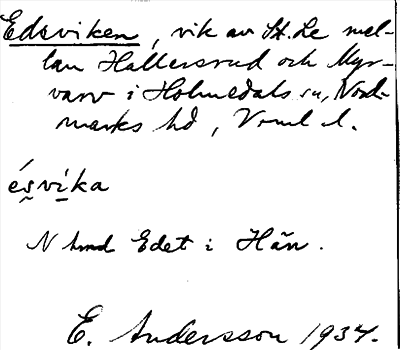 Edsviken, vik av St. Le mel-
lan Hallersrud och Myr-
varv i Holmedals sn, Nord-
marks hd, Vrml l.
és̬vi̱ka
N hmd Edet i Hän.
E. Andersson 1934.